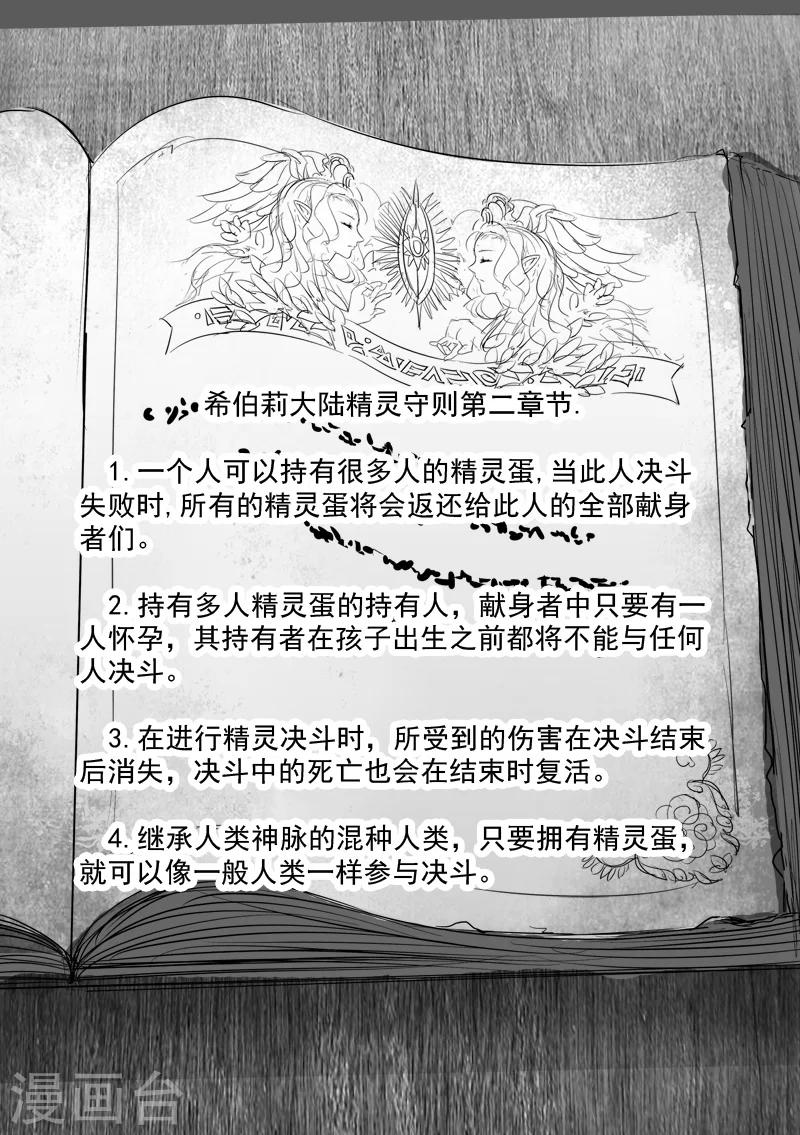 希伯莉大陆精灵守则第二章节.
1.一个人可以持有很多人的精灵蛋,当此人决斗
失败时,所有的精灵蛋将会返还给此人的全部献身
者们。
2.持有多人精灵蛋的持有人，献身者中只要有一
人怀孕，其持有者在孩子出生之前都将不能与任何
人决斗。
3.在进行精灵决斗时，所受到的伤害在决斗结束
后消失，决斗中的死亡也会在结束时复活。
4.继承人类神脉的混种人类，只要拥有精灵蛋，
就可以像一般人类一样参与决斗。
漫画台